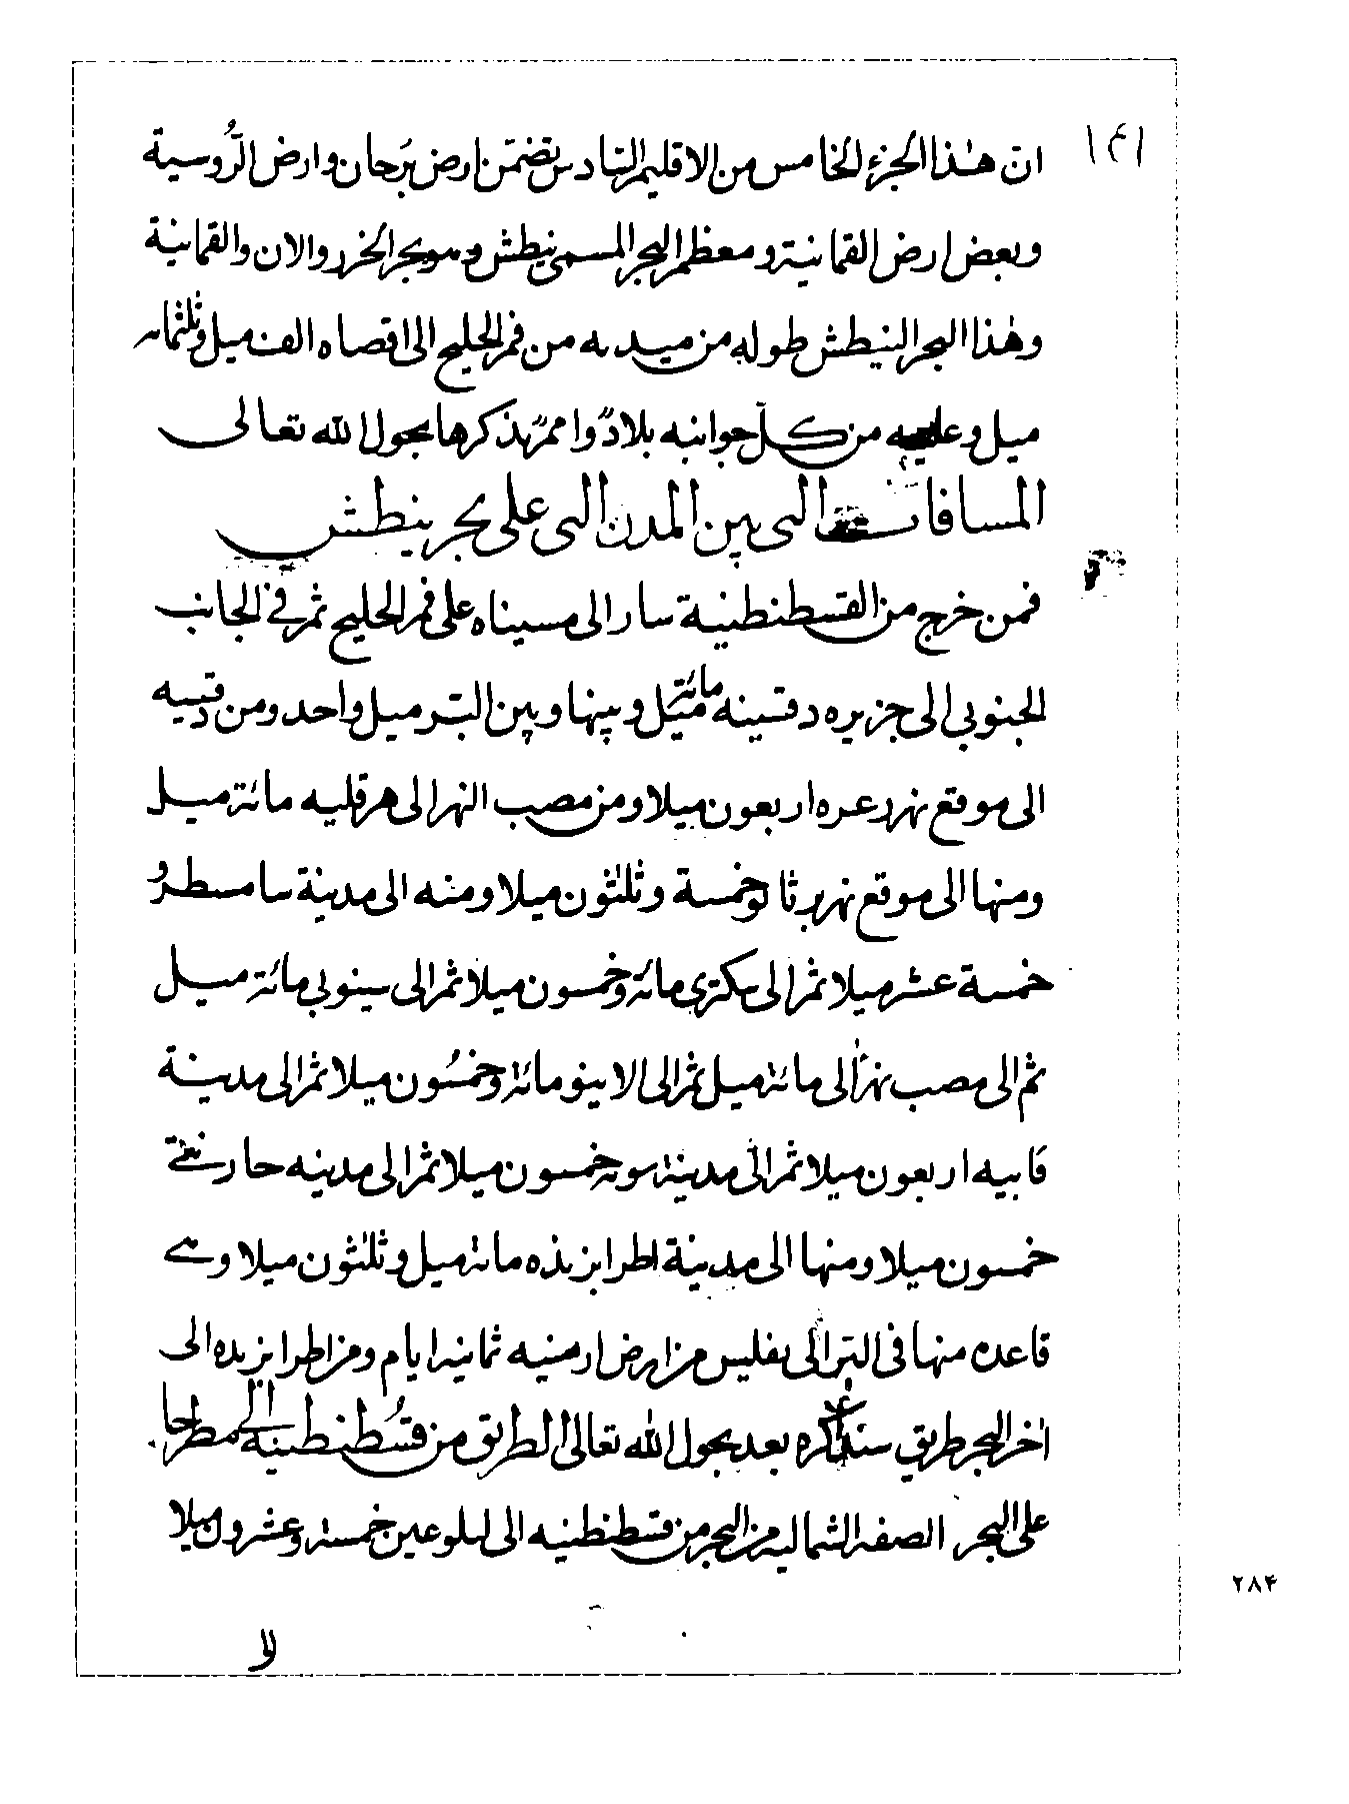 ١٤١
ان هذا الجزء الخامس من الاقليم السّادس تضمّن ارض بَرجان وارض الرُّوسية
وبعض ارض القمانية ومعظم البحر المسمى نيطش وهو بحر الخزر والان والقمانية
وهذا البحر النيطش طوله من ميدىه من فم الخليج الى اقصاه الف ميل وثلثمائه
ميل وعليه من كلّ جوانبه بلادٌ وامم نذكرها بحول الله تعالى
المسافات التى بين المدن التى على بحر نيطش
فمن خرج من القسطنطنية سار الى مسيناه على فم الخليج ثم في الجانب
الجنوبي الى جزيره دقسينه مائة ميل وبينها وبين البّر ميل واحد ومن دقسيه
الى موقع نهر دعره اربعون ميلا ومن مصب النهر الى هرقليه مائة ميل
ومنها الى موقع نهر برثانو خمسة وثلثون ميلا ومنه الى مدينة سامسطرو
خمسة عشر ميلا ثم الى ىىكترى مائة وخمسون ميلا ثم الى سينوبي مائة ميل
ثم الى مصب نهر الى مائة ميل ثم الى لاىينو مائة وخمسُون ميلا ثم الى مدينة
قابيه اربعون ميلا ثم الى مدينة سونه خمسون ميلا ثم الى مدينه حارنقى
خمسون ميلا ومنها الى مدينة اطرابزنده مائة ميل وثلثون ميلا وهى
قاعده منها فى البّر الى تفليس من ارض ارمنيه ثمانية ايام ومن اطرابزيده الى
اخر البحر طريق سنذكره بعد بحول الله تعالى الطريق من قسُطنطينة الى مطرحا
على البحر الصفة الشمالية من البحر من قسطنطنيه الى لىلوعين خمسة وعشرون ميلا
٢٨۴